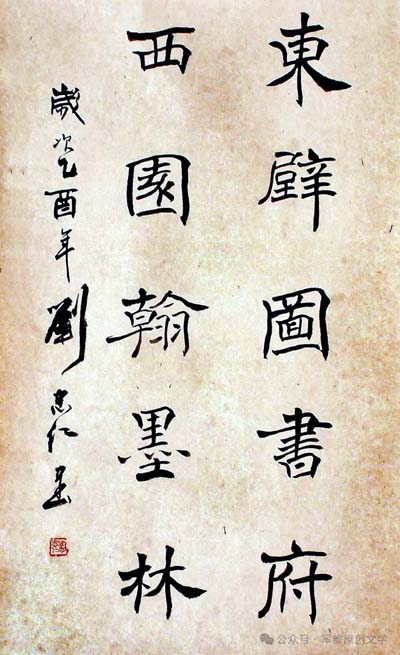 東壁圖書府
西園翰墨林
歲次乙酉年劉忠仁書
公众号·军旅原创文学